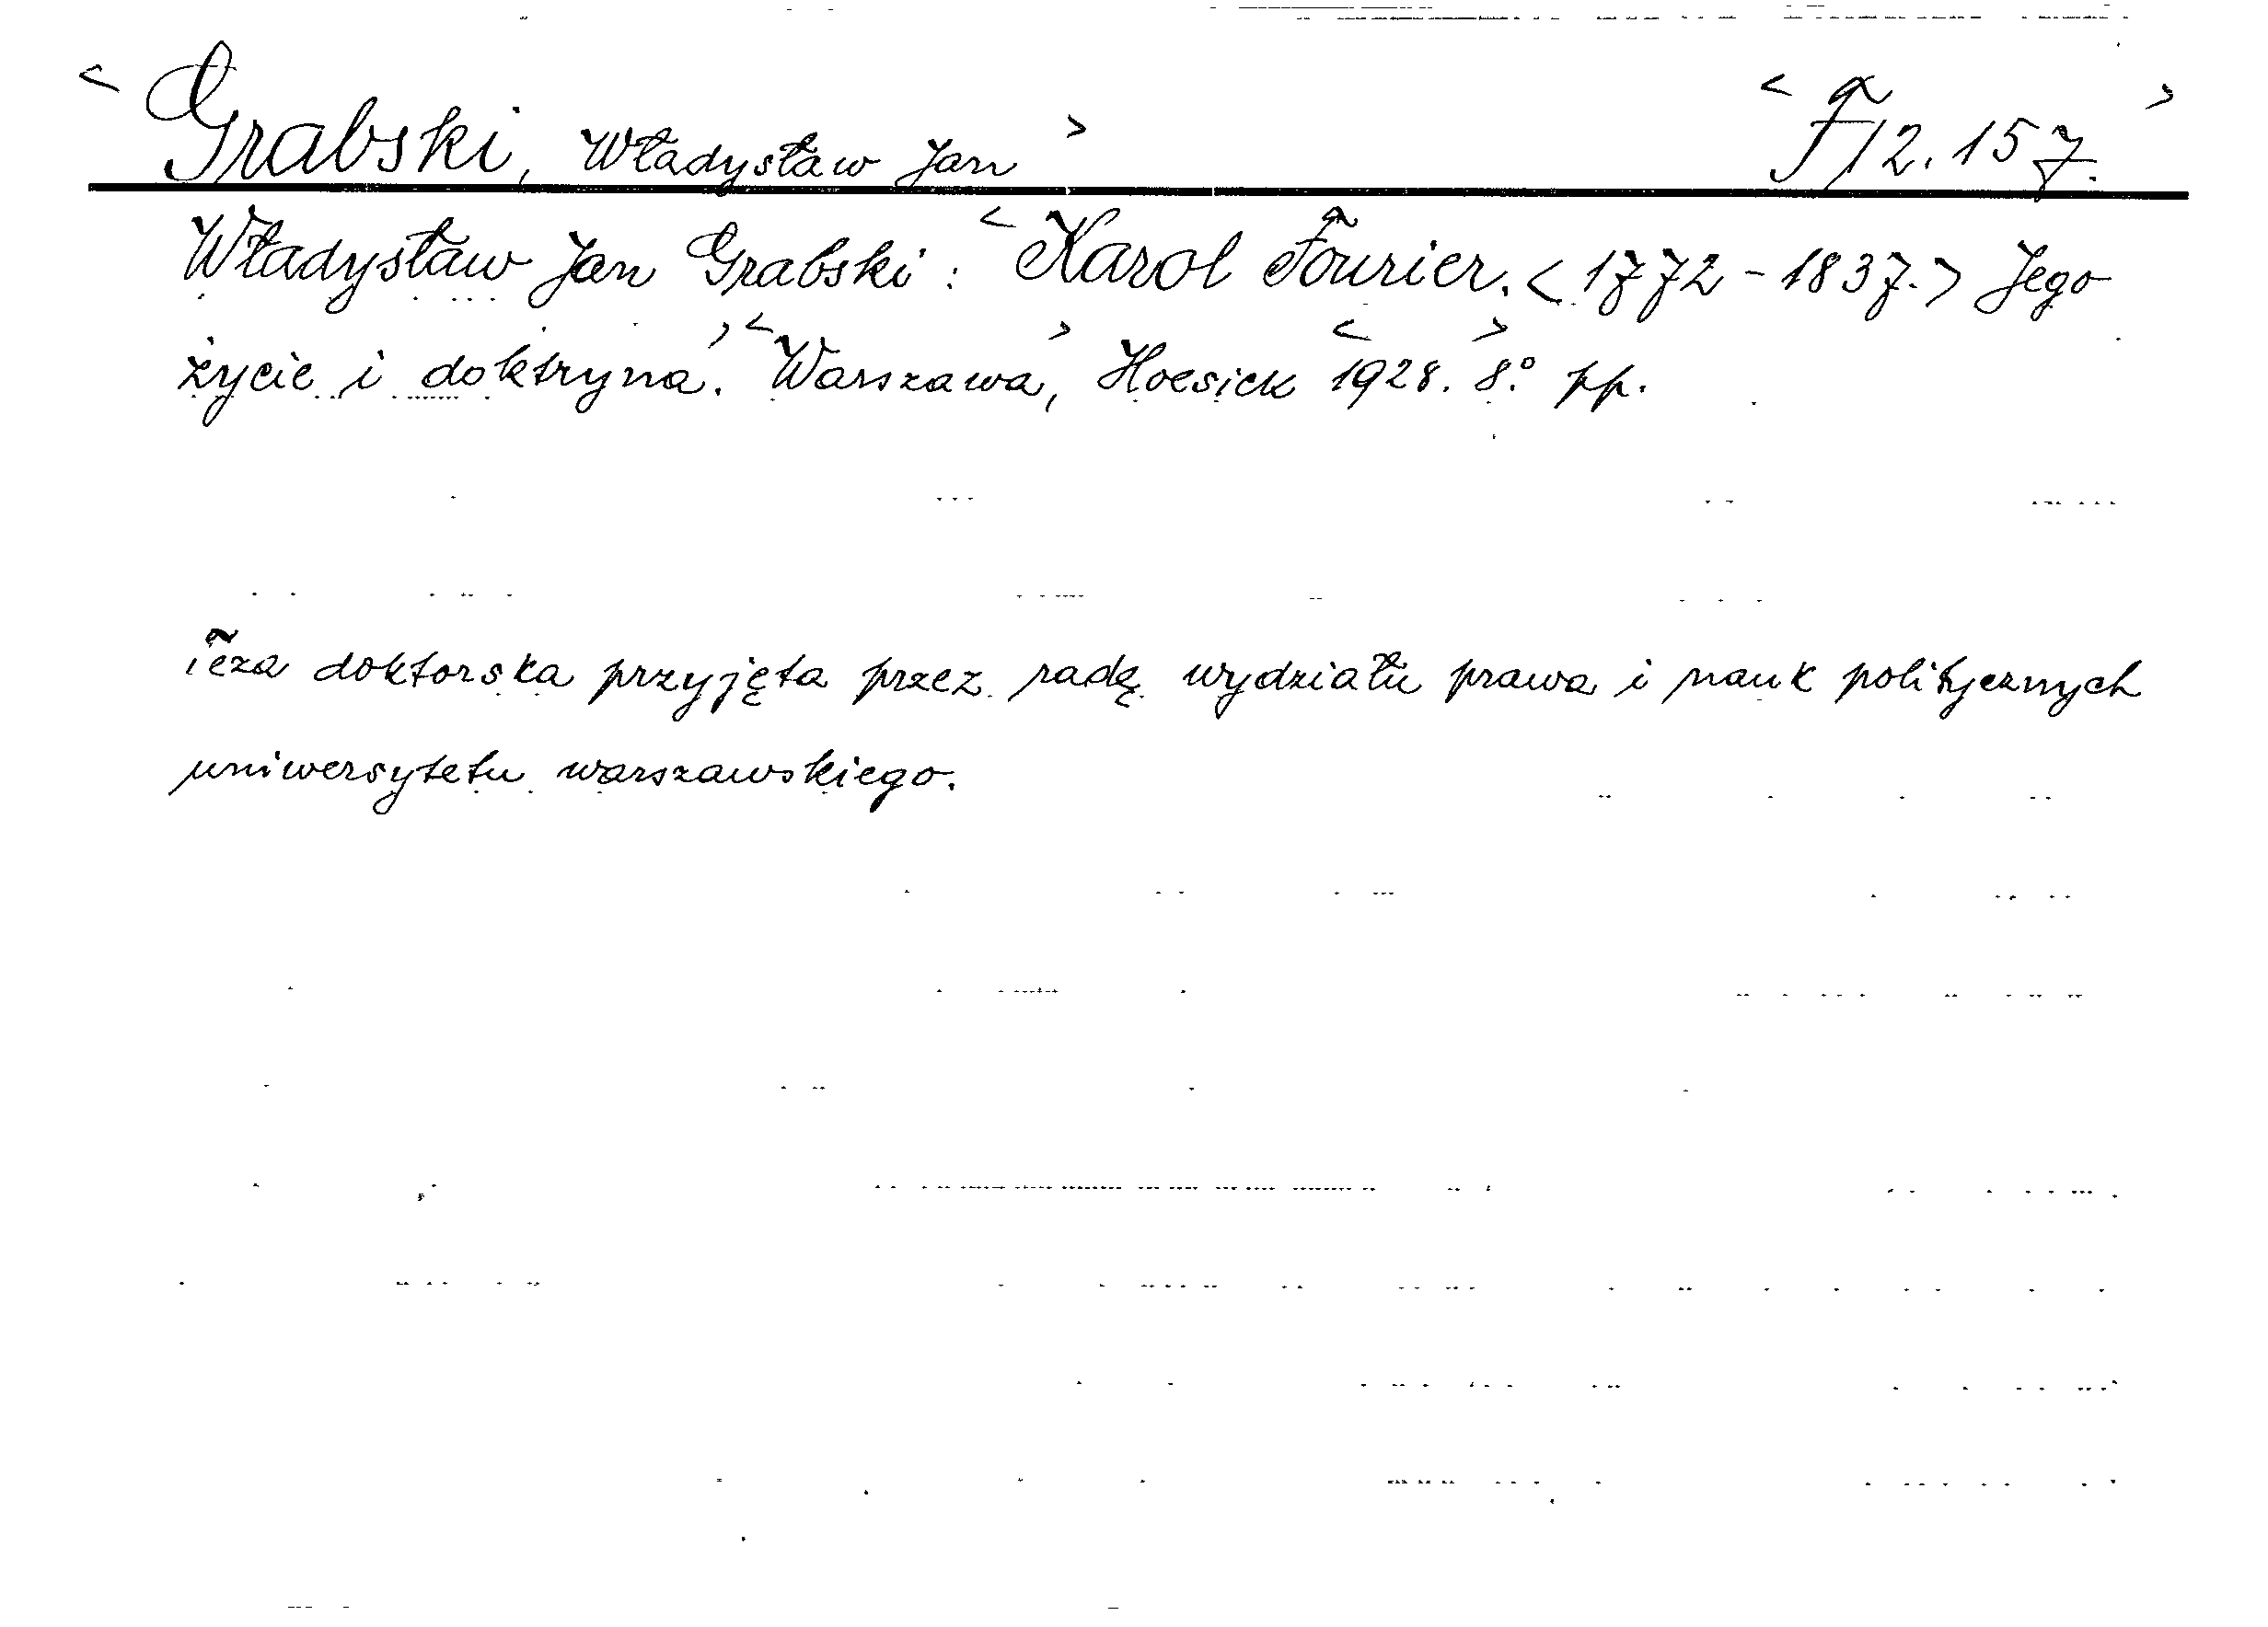 < Grabski, Władysław Jan > < F12.157. >
Władysław Jan Grabski : < Karol Fourier. < 1772 - 1837. > Jego
życie i doktryna. > < Warszawa, > Hoesick < 1928. > 8.° pp.
Teza doktorska przyjęta przez radę wydziału prawa i nauk politycznych
uniwersytetu warszawskiego.